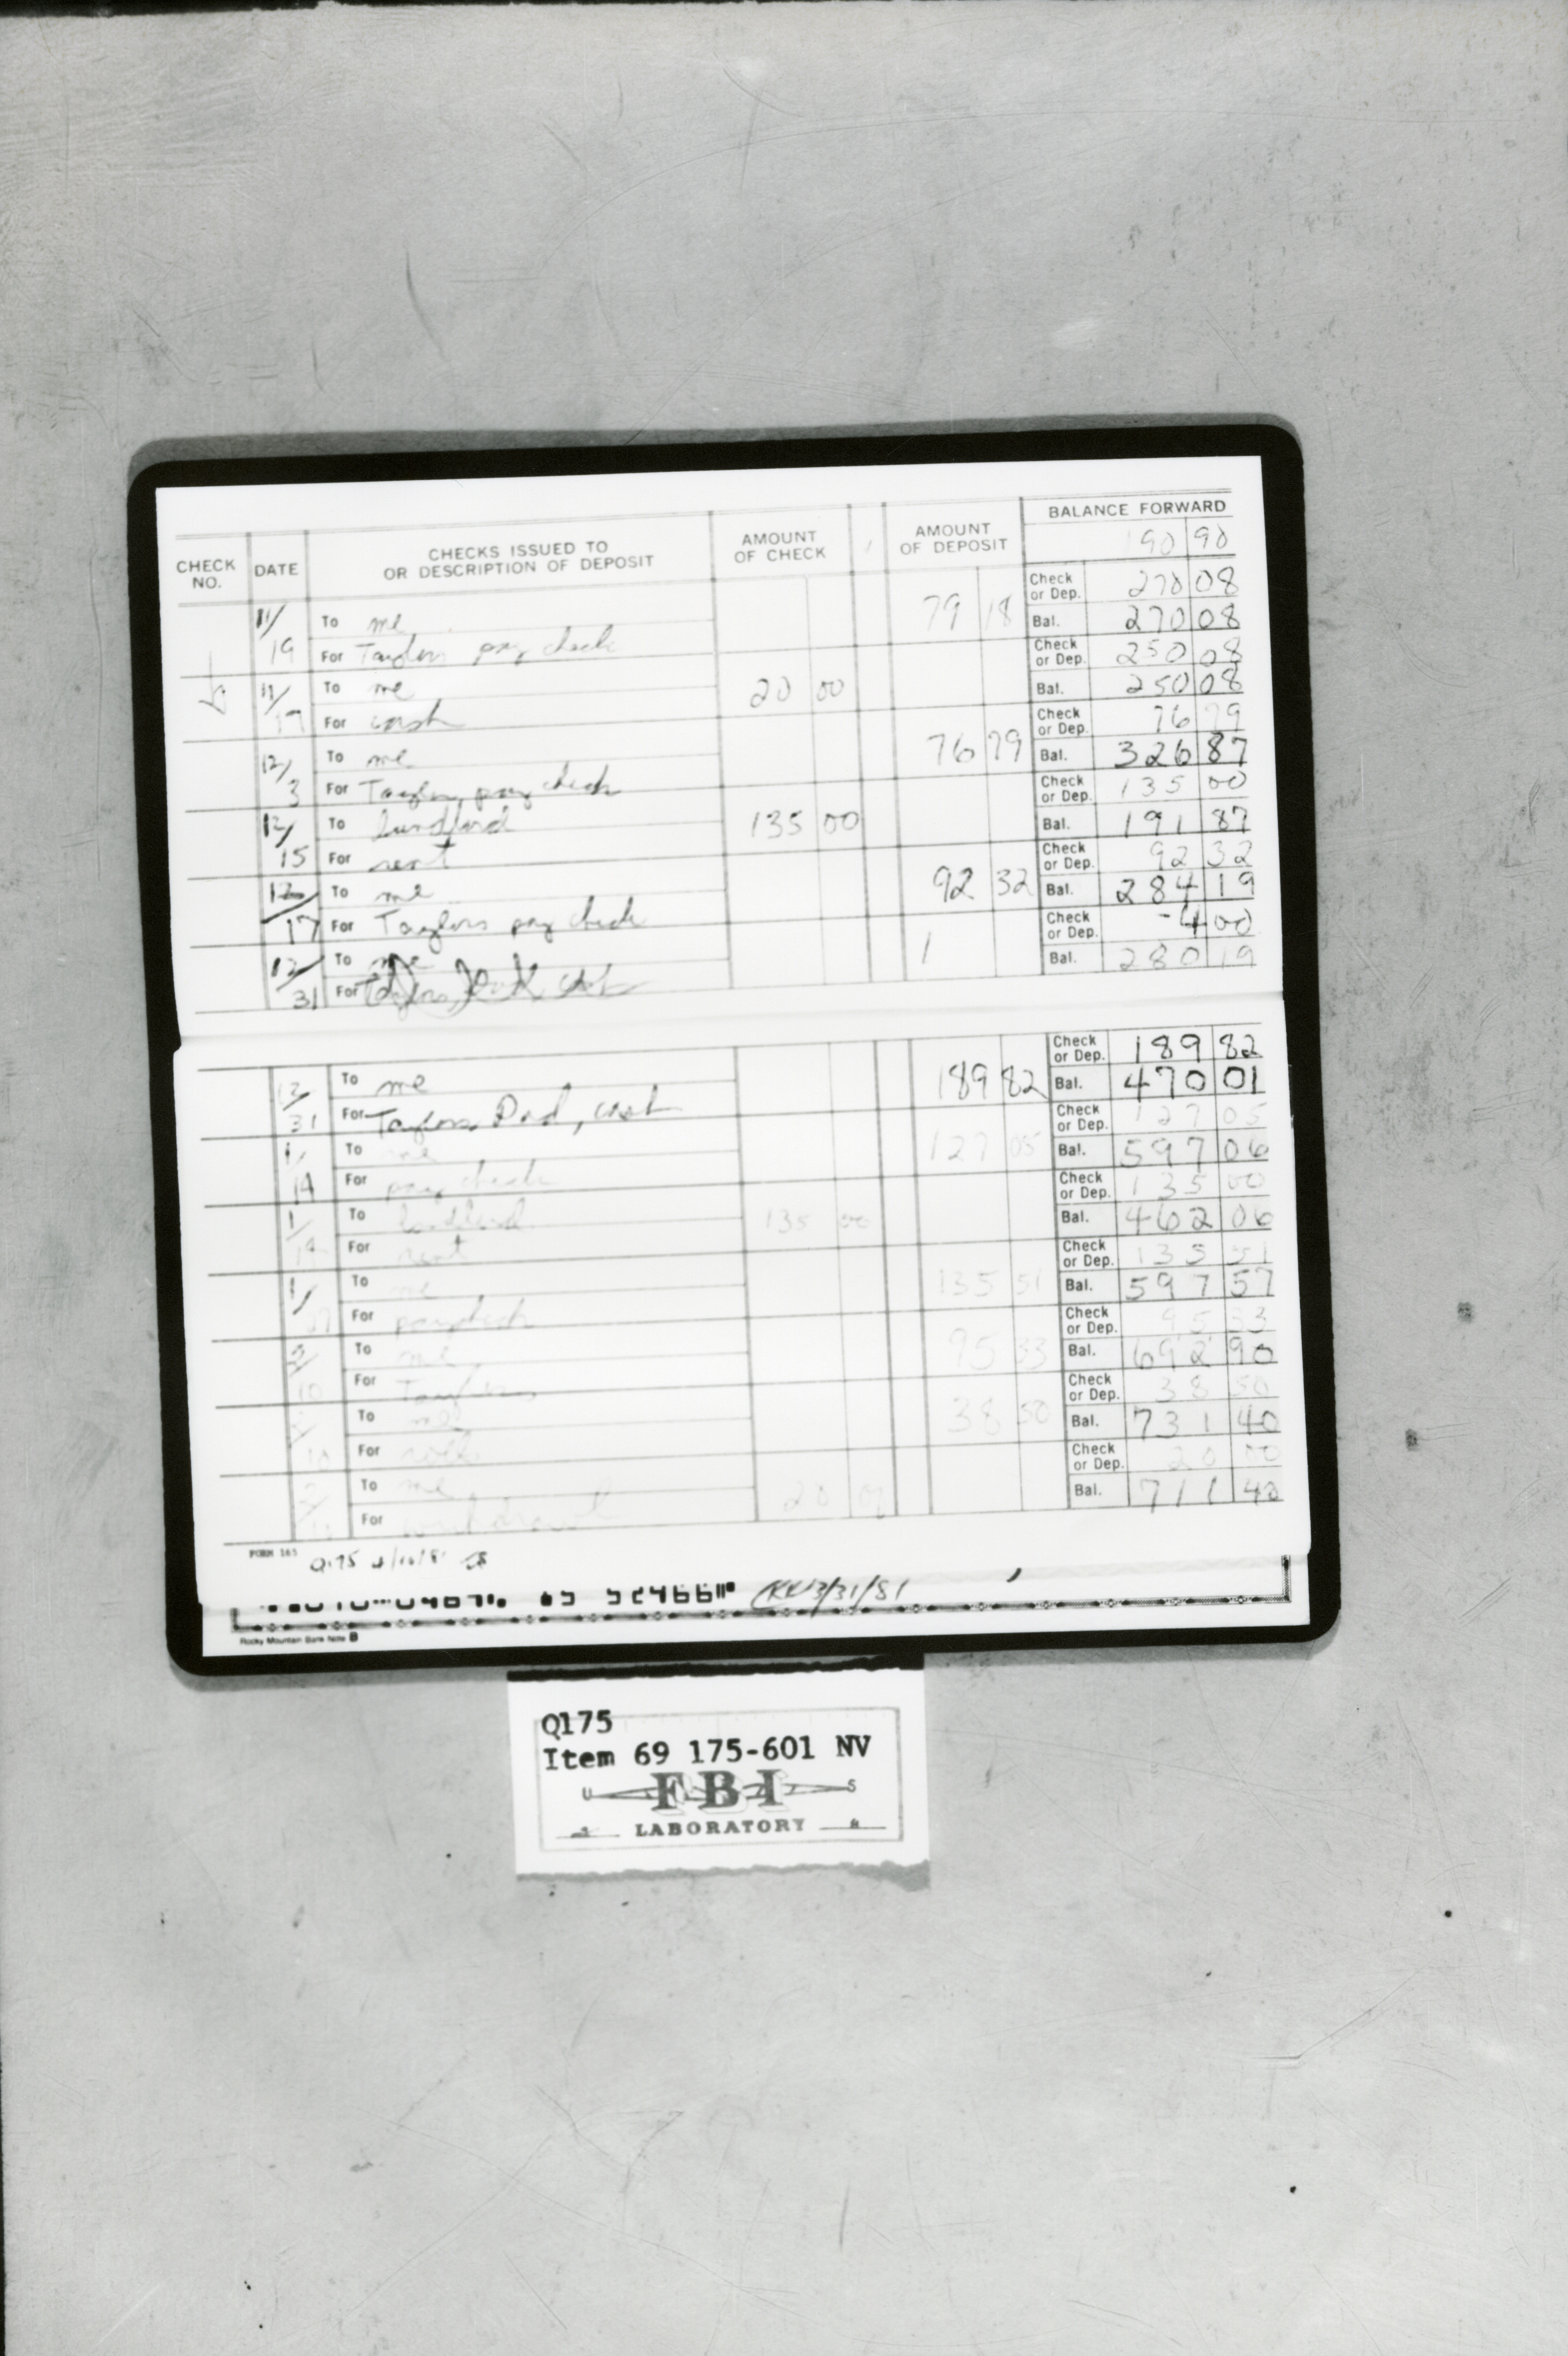 CHECK NO. DATE CHECKS ISSUED TO OR DESCRIPTION OF DEPOSIT AMOUNT OF CHECK AMOUNT OF DEPOSIT BALANCE FORWARD
190 90
11/ To me 79 18 Check or Dep. 270 08
19 For Taylors pay check Bal. 270 08
11/ To me 20 00 Check or Dep. 250 08
For cash Bal. 250 08
12/ To me 76 79 Check or Dep. 76 79
3 For Taylors pay check Bal. 326 87
12/ To landlord 135 00 Check or Dep. 135 00
15 For rent Bal. 191 87
12/ To me 92 32 Check or Dep. 92 32
17 For Taylors pay check Bal. 284 19
12/ To me 1 Check or Dep. -4 00
31 For Bal. 280 19
12/ To me 189 82 Check or Dep. 189 82
31 For Taylors, Dad, cash Bal. 470 01
1/ To me 127 05 Check or Dep. 127 05
14 For pay check Bal. 597 06
1/ To landlord 135 00 Check or Dep. 135 00
For rent Bal. 462 06
1/ To me 135 51 Check or Dep. 135 51
For paycheck Bal. 597 57
2/ To me 95 33 Check or Dep. 95 33
10 For Taylors Bal. 692 90
To me 38 50 Check or Dep. 38 50
10 For Bal. 731 40
To me 20 00 Check or Dep. 20 00
For withdrawal Bal. 711 40
FORM 165
Q175
3/31/81
Rocky Mountain Bank Note
Q175
Item 69 175-601 NV
U FBI S
LABORATORY